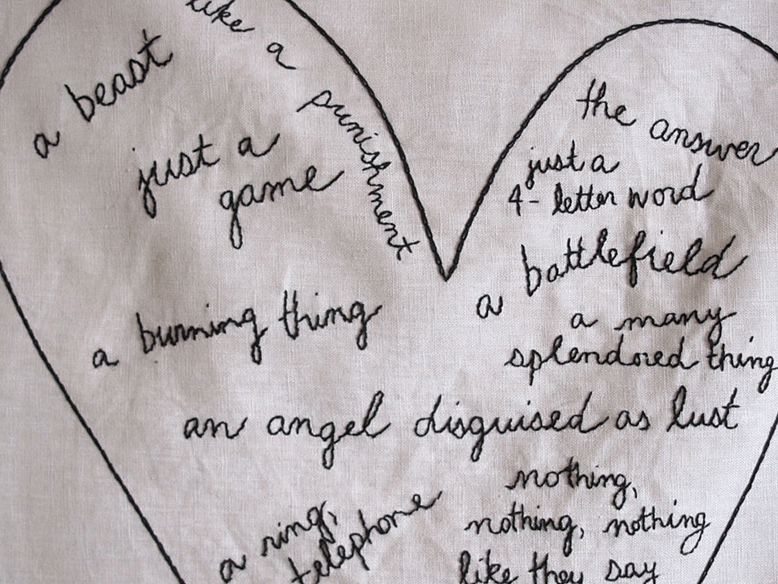 a beast
like a punishment
just a
game
the answer
just a
4-letter word
a battlefield
a many
splendored thing
a burning thing
an angel disguised as lust
a ring,
telephone
nothing,
nothing, nothing
like they say